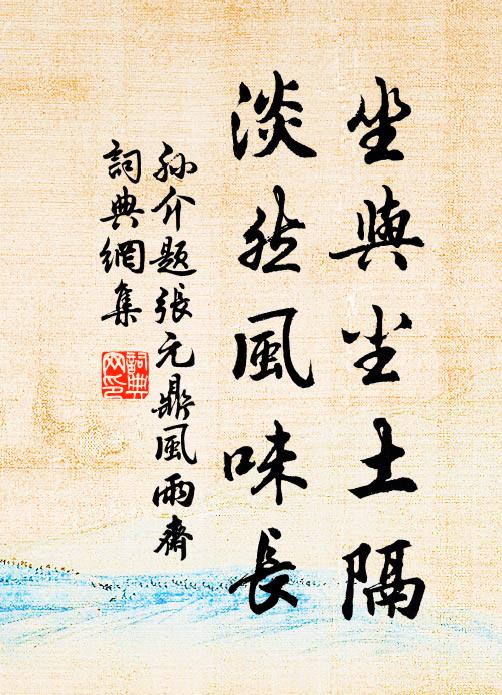 坐與尘土隔
淡然風味長
孫介题張元鼎風雨齋
詞典網集
詞典
网印